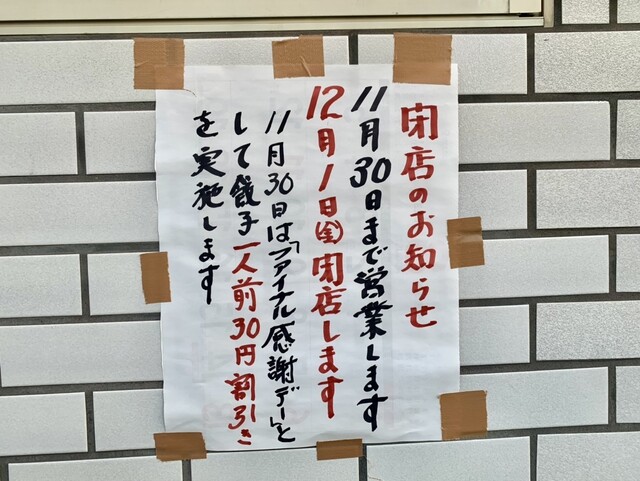 閉店のお知らせ
11月30日まで営業します
12月1日㊎閉店します
11月30日は「ファイナル感謝デー」と
して餃子一人前30円割引き
を実施します